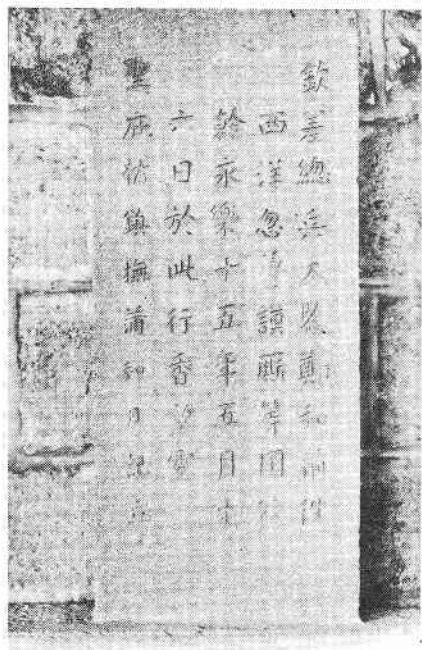 欽差總兵太監鄭和前往
西洋忽魯謨廝等國公
幹永樂十五年五月十
六日於此行香望靈
聖庇祐鎮撫蒲和日記立